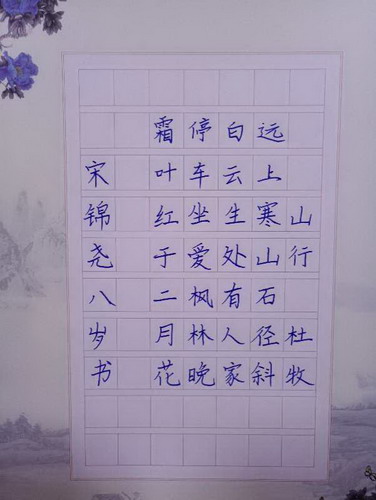 山行 杜牧
远上寒山石径斜
白云生处有人家
停车坐爱枫林晚
霜叶红于二月花
宋锦尧八岁书